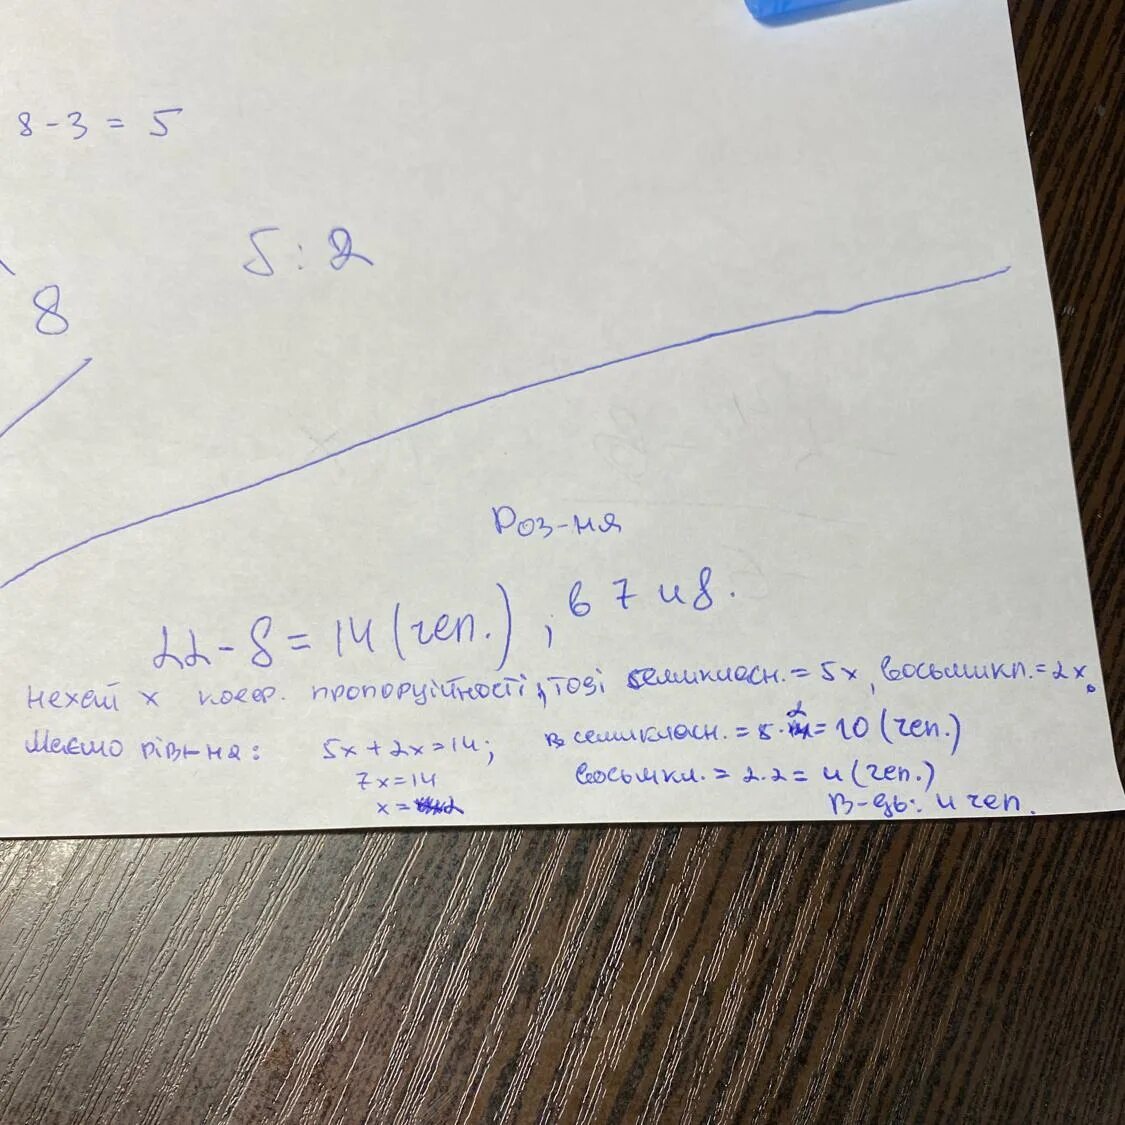 8 - 3 = 5
5 : 2
8
Роз-ня
22 - 8 = 14 (чел.), в 7 и 8.
нехай х коеф. пропорційності, тоді семикласн. = 5x, восьмикл. = 2x.
Маємо рівн-ня: 5x + 2x = 14; семикласн. = 5 · 2 = 10 (чел.)
7x = 14 восьмкл. = 2.2 = 4 (чел.)
x = 2 В-дь: 4 чел.